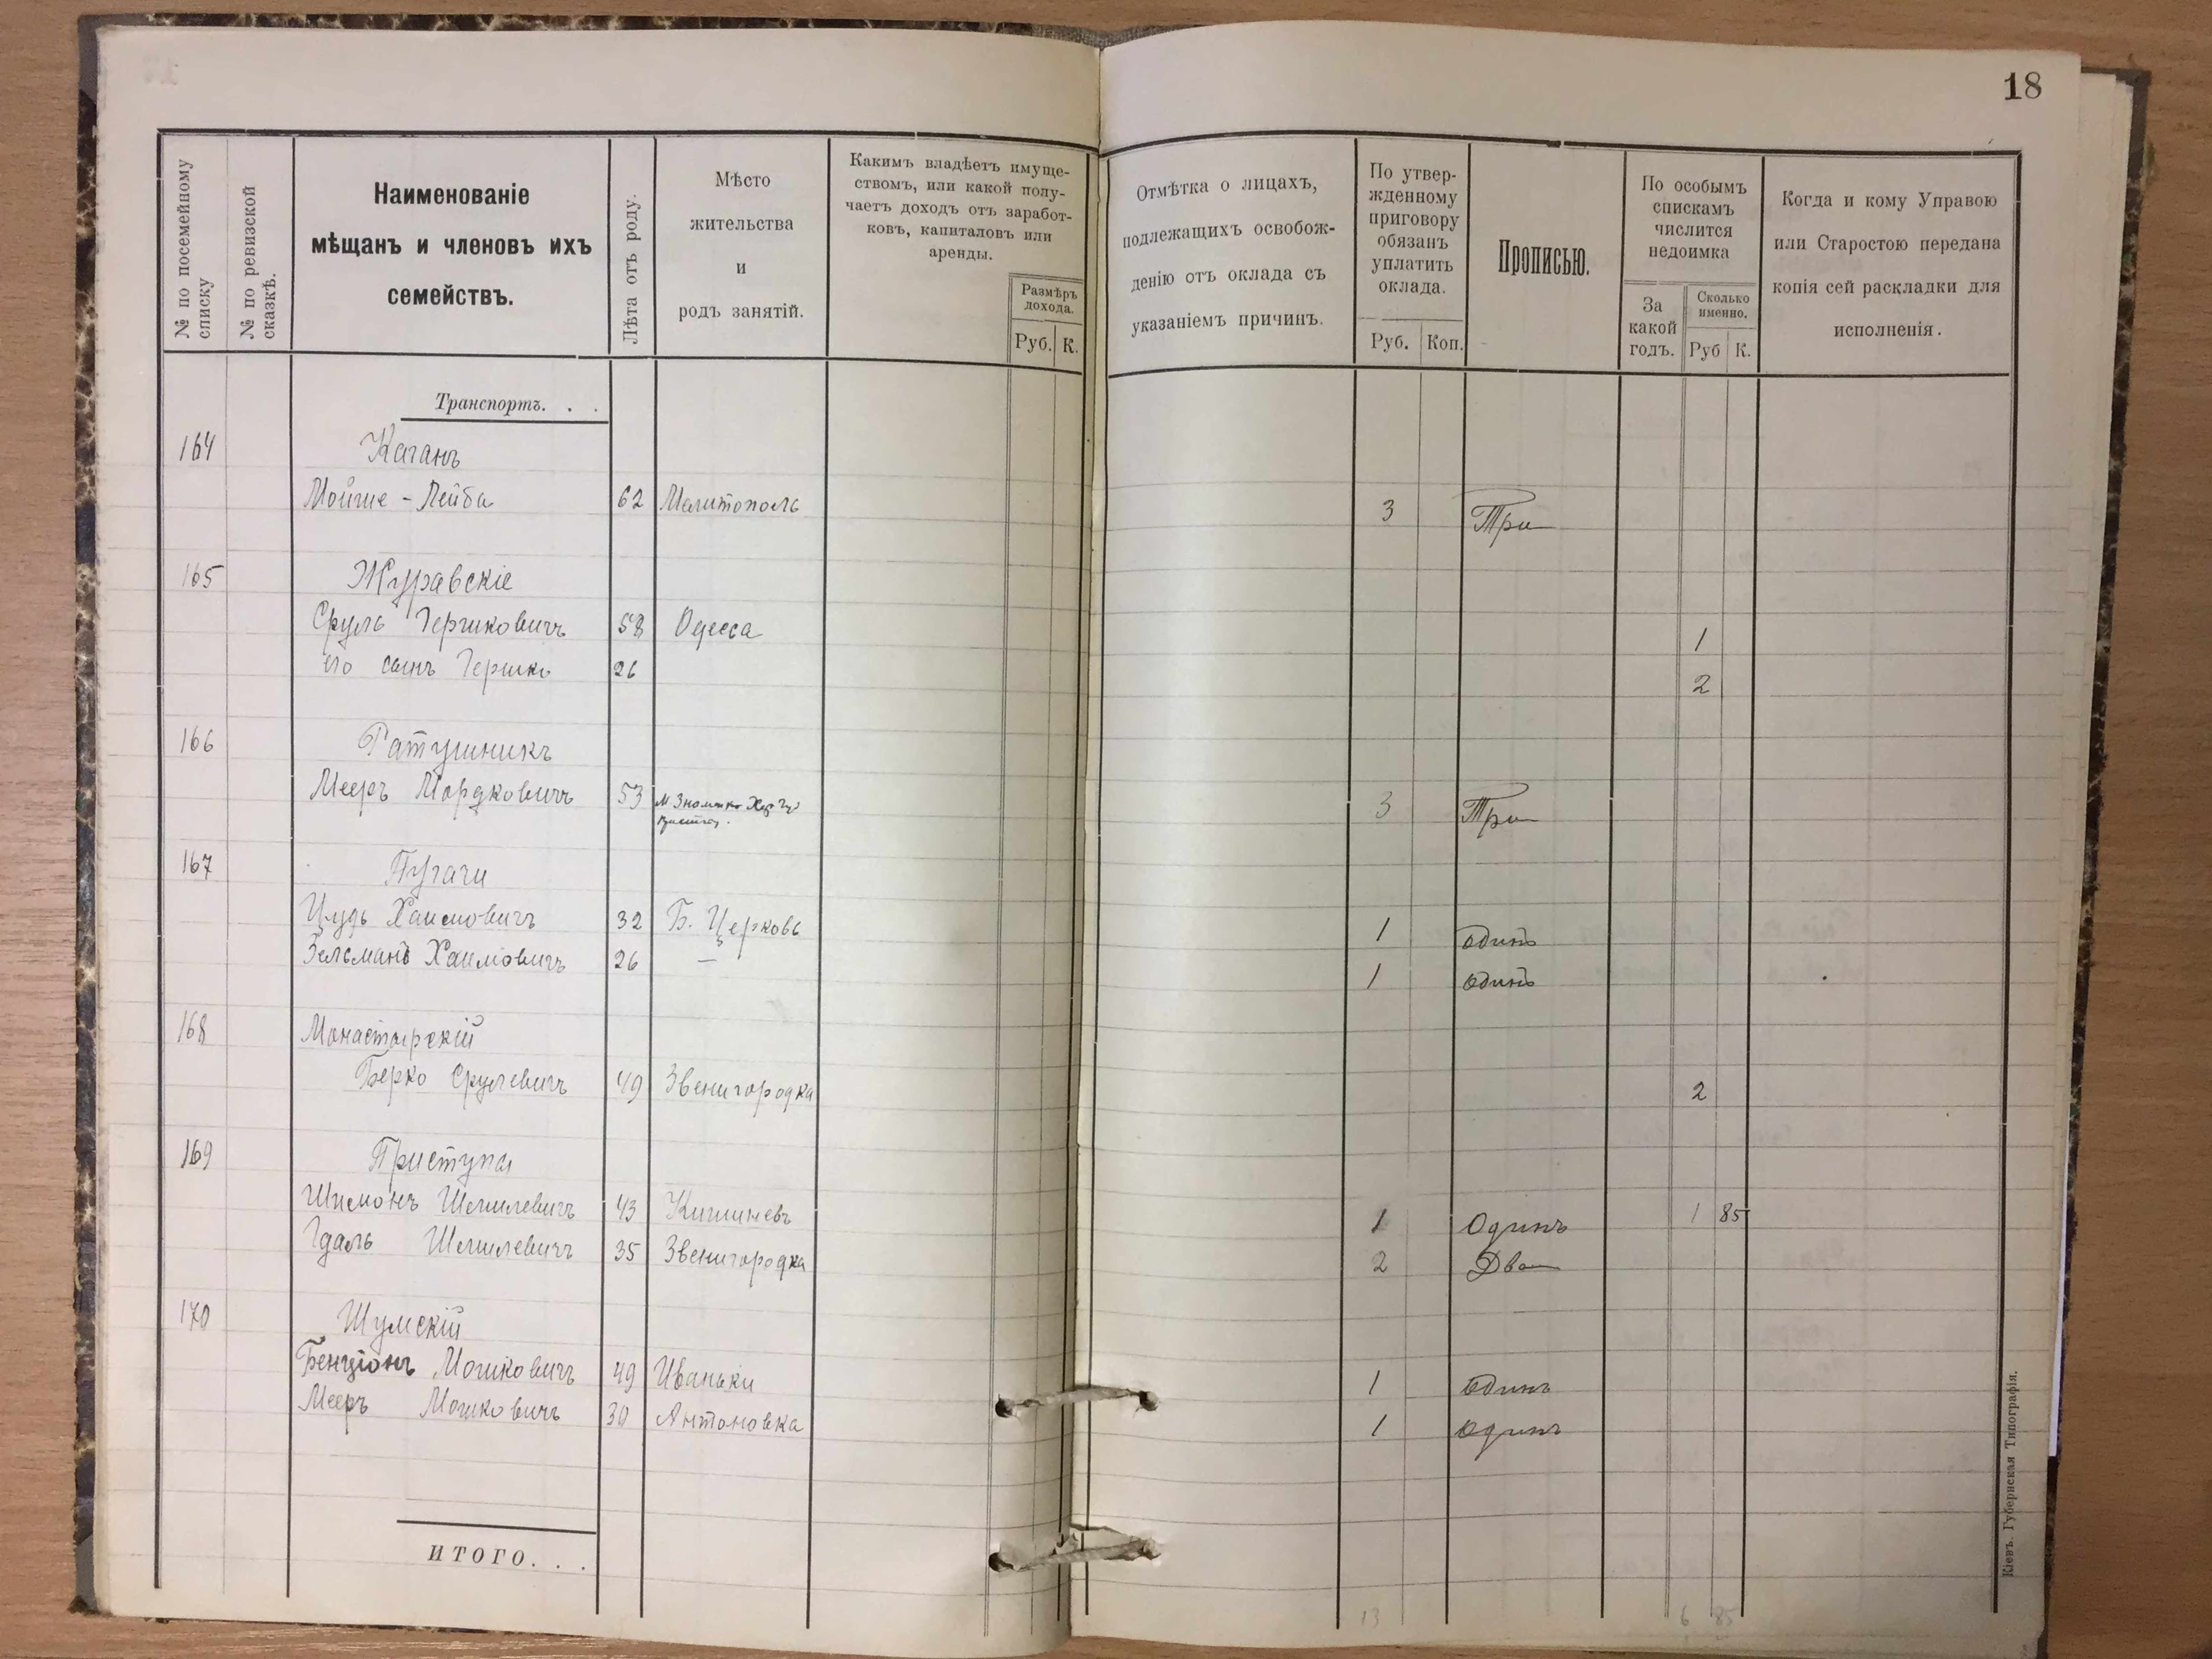 18
№ по посемейному списку
№ по ревизской сказкѣ.
Наименованіе
мѣщанъ и членовъ ихъ
семействъ.
Лѣта отъ роду.
Мѣсто
жительства
и
родъ занятій.
Какимъ владѣетъ имуще-
ствомъ, или какой полу-
чаетъ доходъ отъ заработ-
ковъ, капиталовъ или
аренды.
Размѣръ
дохода.
Руб. К.
Отмѣтка о лицахъ,
подлежащихъ освобож-
денію отъ оклада съ
указаніемъ причинъ.
По утвер-
жденному
приговору
обязанъ
уплатить
оклада.
Руб. Коп.
Прописью.
По особымъ
спискамъ
числится
недоимка
За
какой
годъ.
Сколько
именно.
Руб К.
Когда и кому Управою
или Старостою передана
копія сей раскладки для
исполненія.
Транспортъ. . .
164 Каганъ
Мойше - Лейба 62 Мелитополь 3 Три
165 Журавскіе
Сруль Гершковичъ 58 Одесса 1
его сынъ Гершко 26 2
166 Ратушникъ
Мееръ Мордковичъ 53 М. Знаменка Хер. Губ 3 Три
167 Пугачи
Цудь Хаимовичъ 32 Б. Церковь 1 один
Зельманъ Хаимовичъ 26 — 1 один
168 Монастырскій
Берко Срулевичъ 49 Звенигородка 2
169 Приступа
Шимонъ Шмилевичъ 43 Кишиневъ 1 Одинъ 1 85
Гдаль Шмилевичъ 35 Звенигородка 2 Два
170 Шумскій
Бенціонъ Мошковичъ 49 Иваньки 1 одинъ
Мееръ Мошковичъ 30 Антоновка 1 одинъ
ИТОГО. . .
13 6 85
Кіевъ. Губернская Типографія.